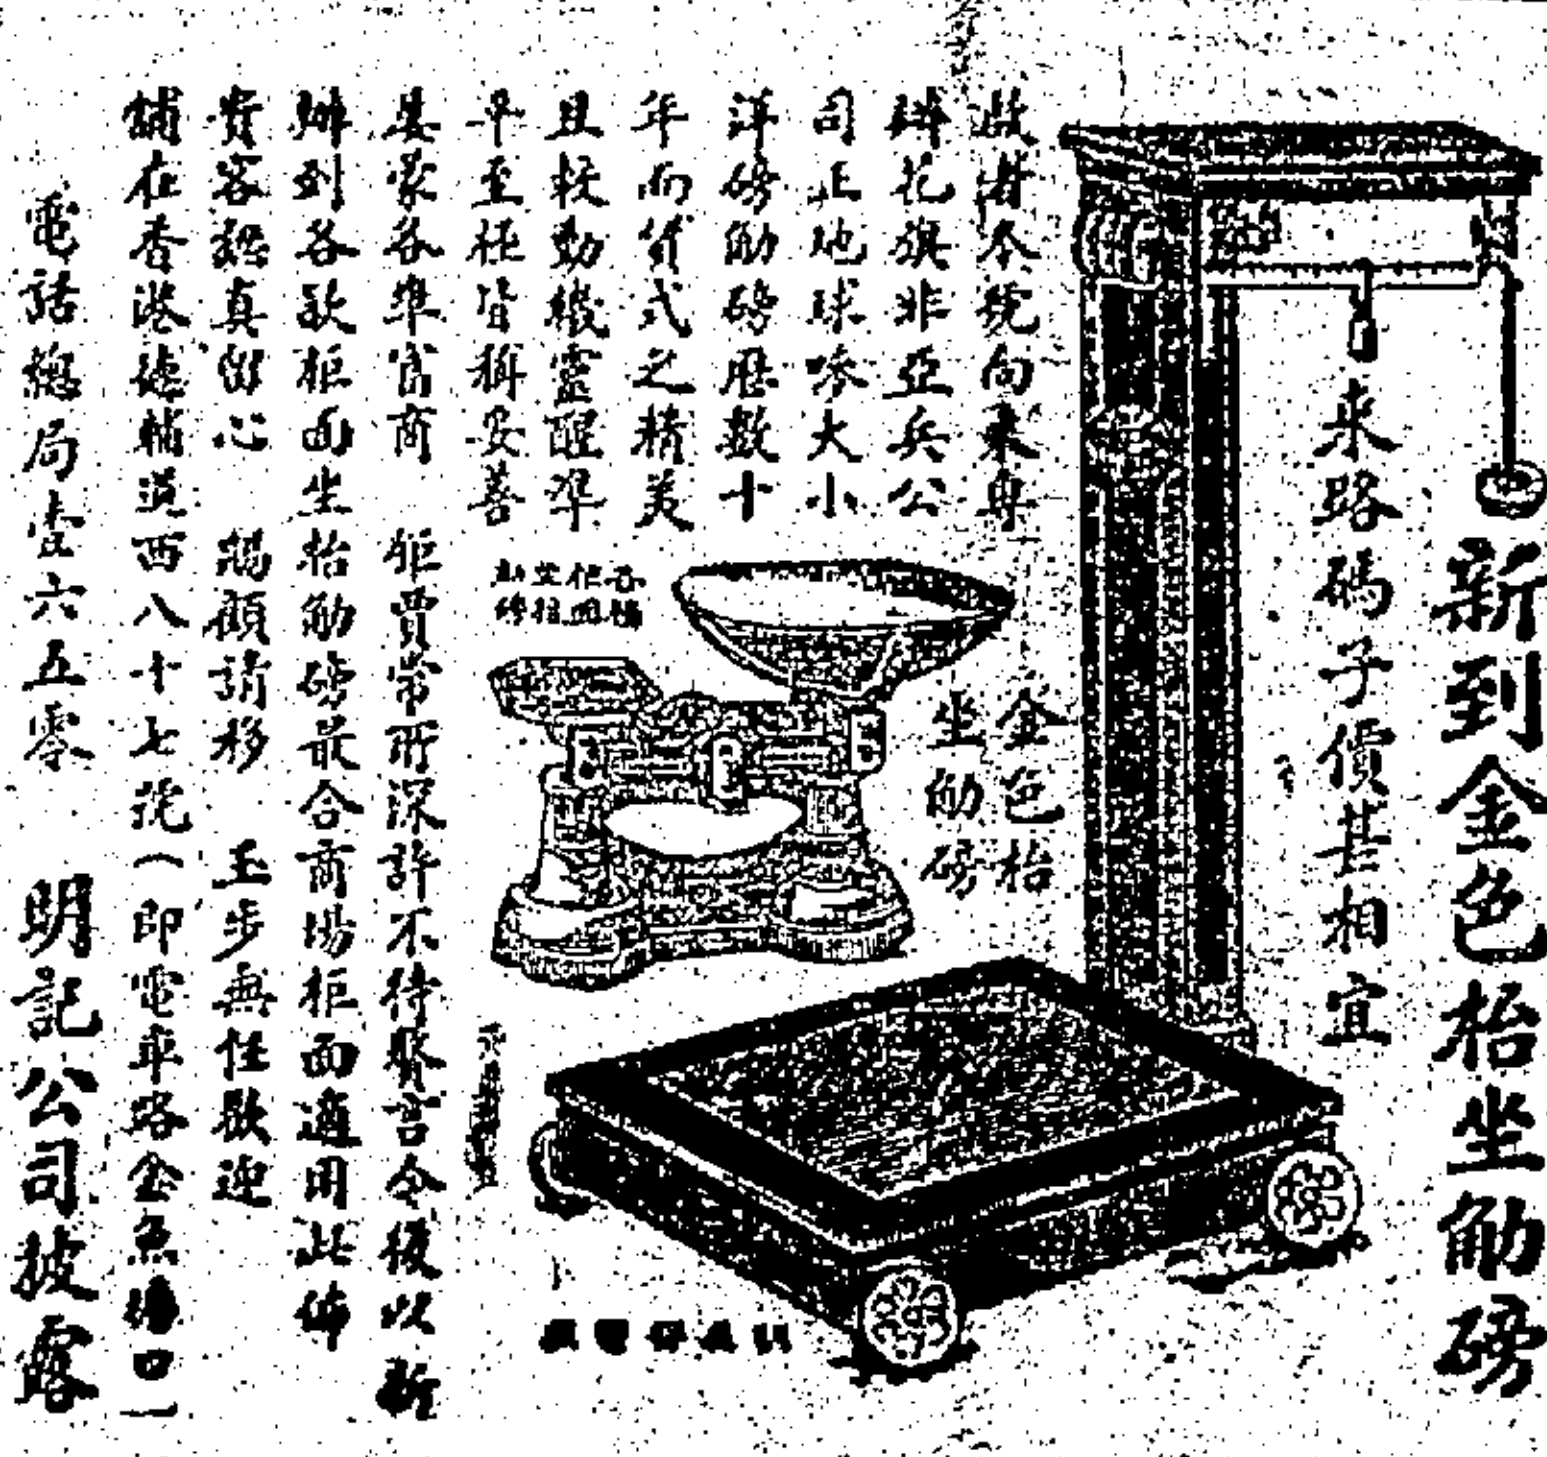 新到金色枱坐觔磅
来路碼子價甚相宜
啟者本號向來專
辦花旗非亞兵公
司正地球嘜大小
洋磅觔磅歷數十
年而貨式之精美
且較動機靈醒準
平至極皆稱妥善
屢蒙各準富商 鉅賈常所深許不待贅言今復以新
辦到各款柜面坐枱觔磅最合商場柜面適用此佈
貴客認真留心 賜顧請移 玉步無任歡迎
舖在香港德輔道西八十七號(即電車路金魚塘口)
電話總局壹六五零 明記公司披露
金色枱
坐觔磅